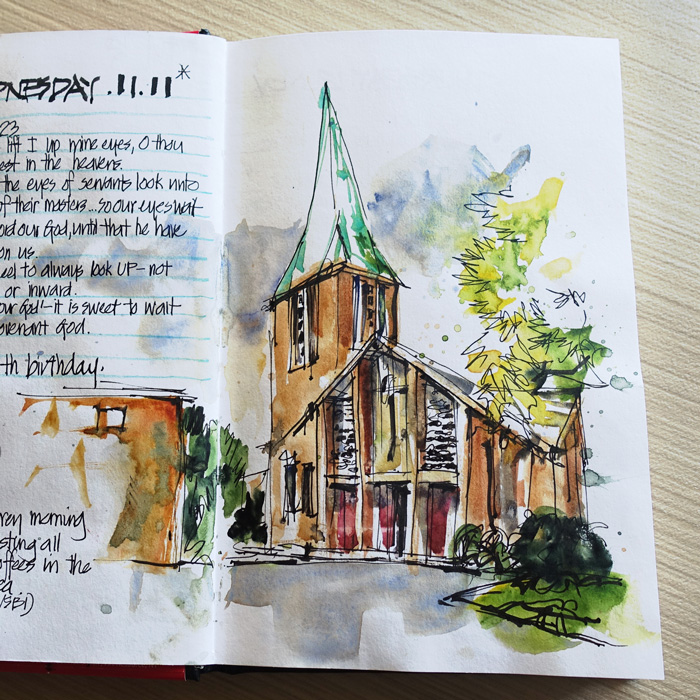 NESDAY .11.11*
23
lift I up mine eyes, O thou
est in the heavens.
the eyes of servants look unto
of their masters...so our eyes wait
ord our God, until that he have
on us.
eel to always look UP - not
or inward.
our God" - it is sweet to wait
ovenant God.
th birthday.
rey morning
sting all
offees in the
ea